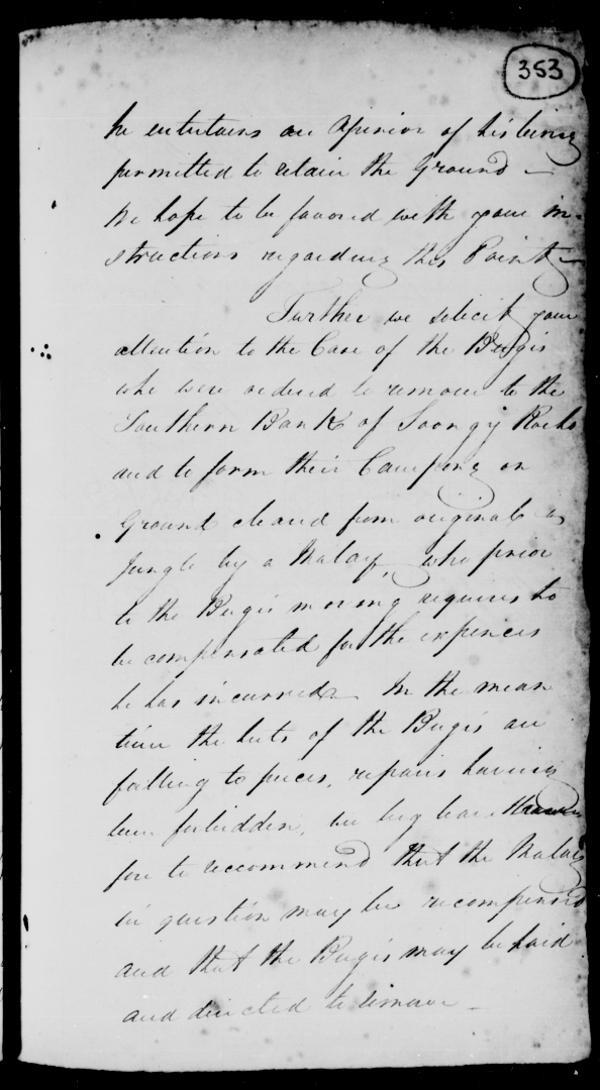 353
he entertains an Opinion of his being
permitted to retain the Ground —
We hope to be favored with your in-
structions regarding this Point —
Further we solicit your
attention to the Case of the Bugis
who were ordered to remove to the
Southern Bank of Soongy Rocho
and to form their Campong on
Ground cleared from original
Jungle by a Malay, who prior
to the Bugis moving requires to
be compensated for the expences
he has incurred — In the mean
time the huts of the Bugis are
falling to pieces, repairs having
been forbidden, we beg leave
for to reccommend that the Malay
in question may be recompensed
and that the Bugis may be paid
and directed to remove —